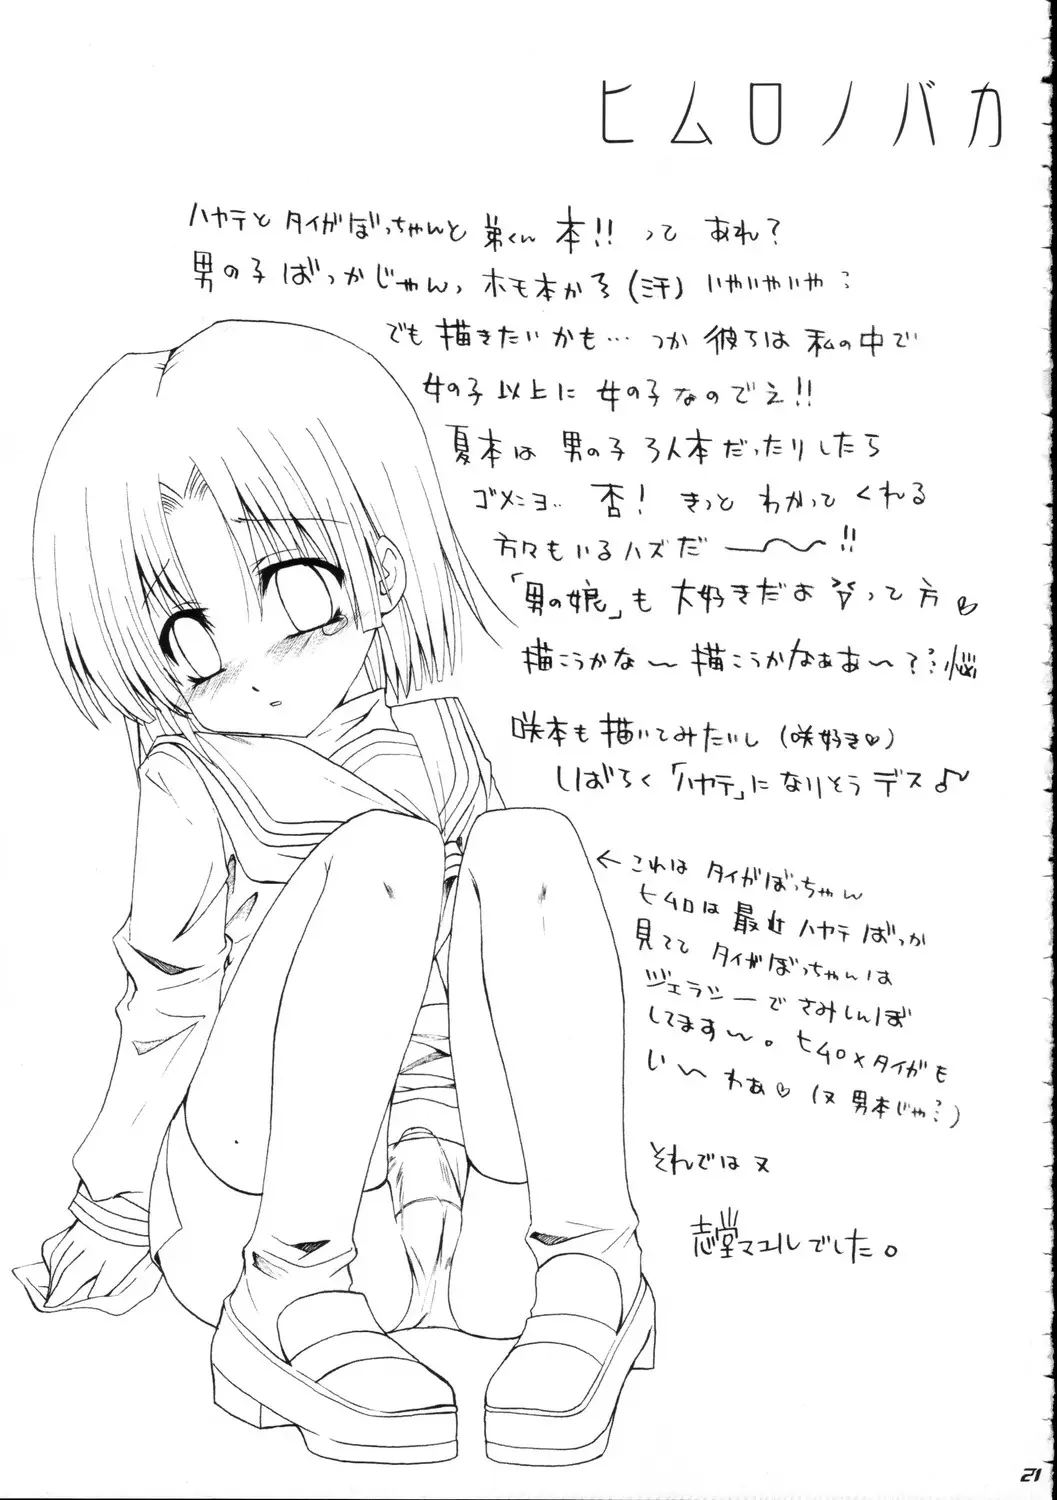 ヒムロノバカ
ハヤテとタイガぼっちゃんと弟くん本!!って あれ?
男の子ばっかじゃんっ ホモ本かよ(汗)いやいやいや…
でも描きたいかも…つか彼らは私の中で
女の子以上に女の子なのでえ!!
夏本は男の子3人本だったりしたら
ゴメニョ… 否! きっと わかってくれる
方々もいるハズだ ー〜〜!!
「男の娘」も大好きだよ って方♡
描こうかな〜描こうかなぁあ〜?…悩
咲本も描いてみたいし(咲好き♡)
しばらく「ハヤテ」になりそうデス♪
←これはタイガぼっちゃん
ヒムロは最近ハヤテばっか
見ててタイガぼっちゃんは
ジェラシーでさみしんぼ
してます〜。ヒムロ×タイガも
い〜わぁ♡(ヌ男本じゃ…)
それではヌ
志堂マユルでした。
21